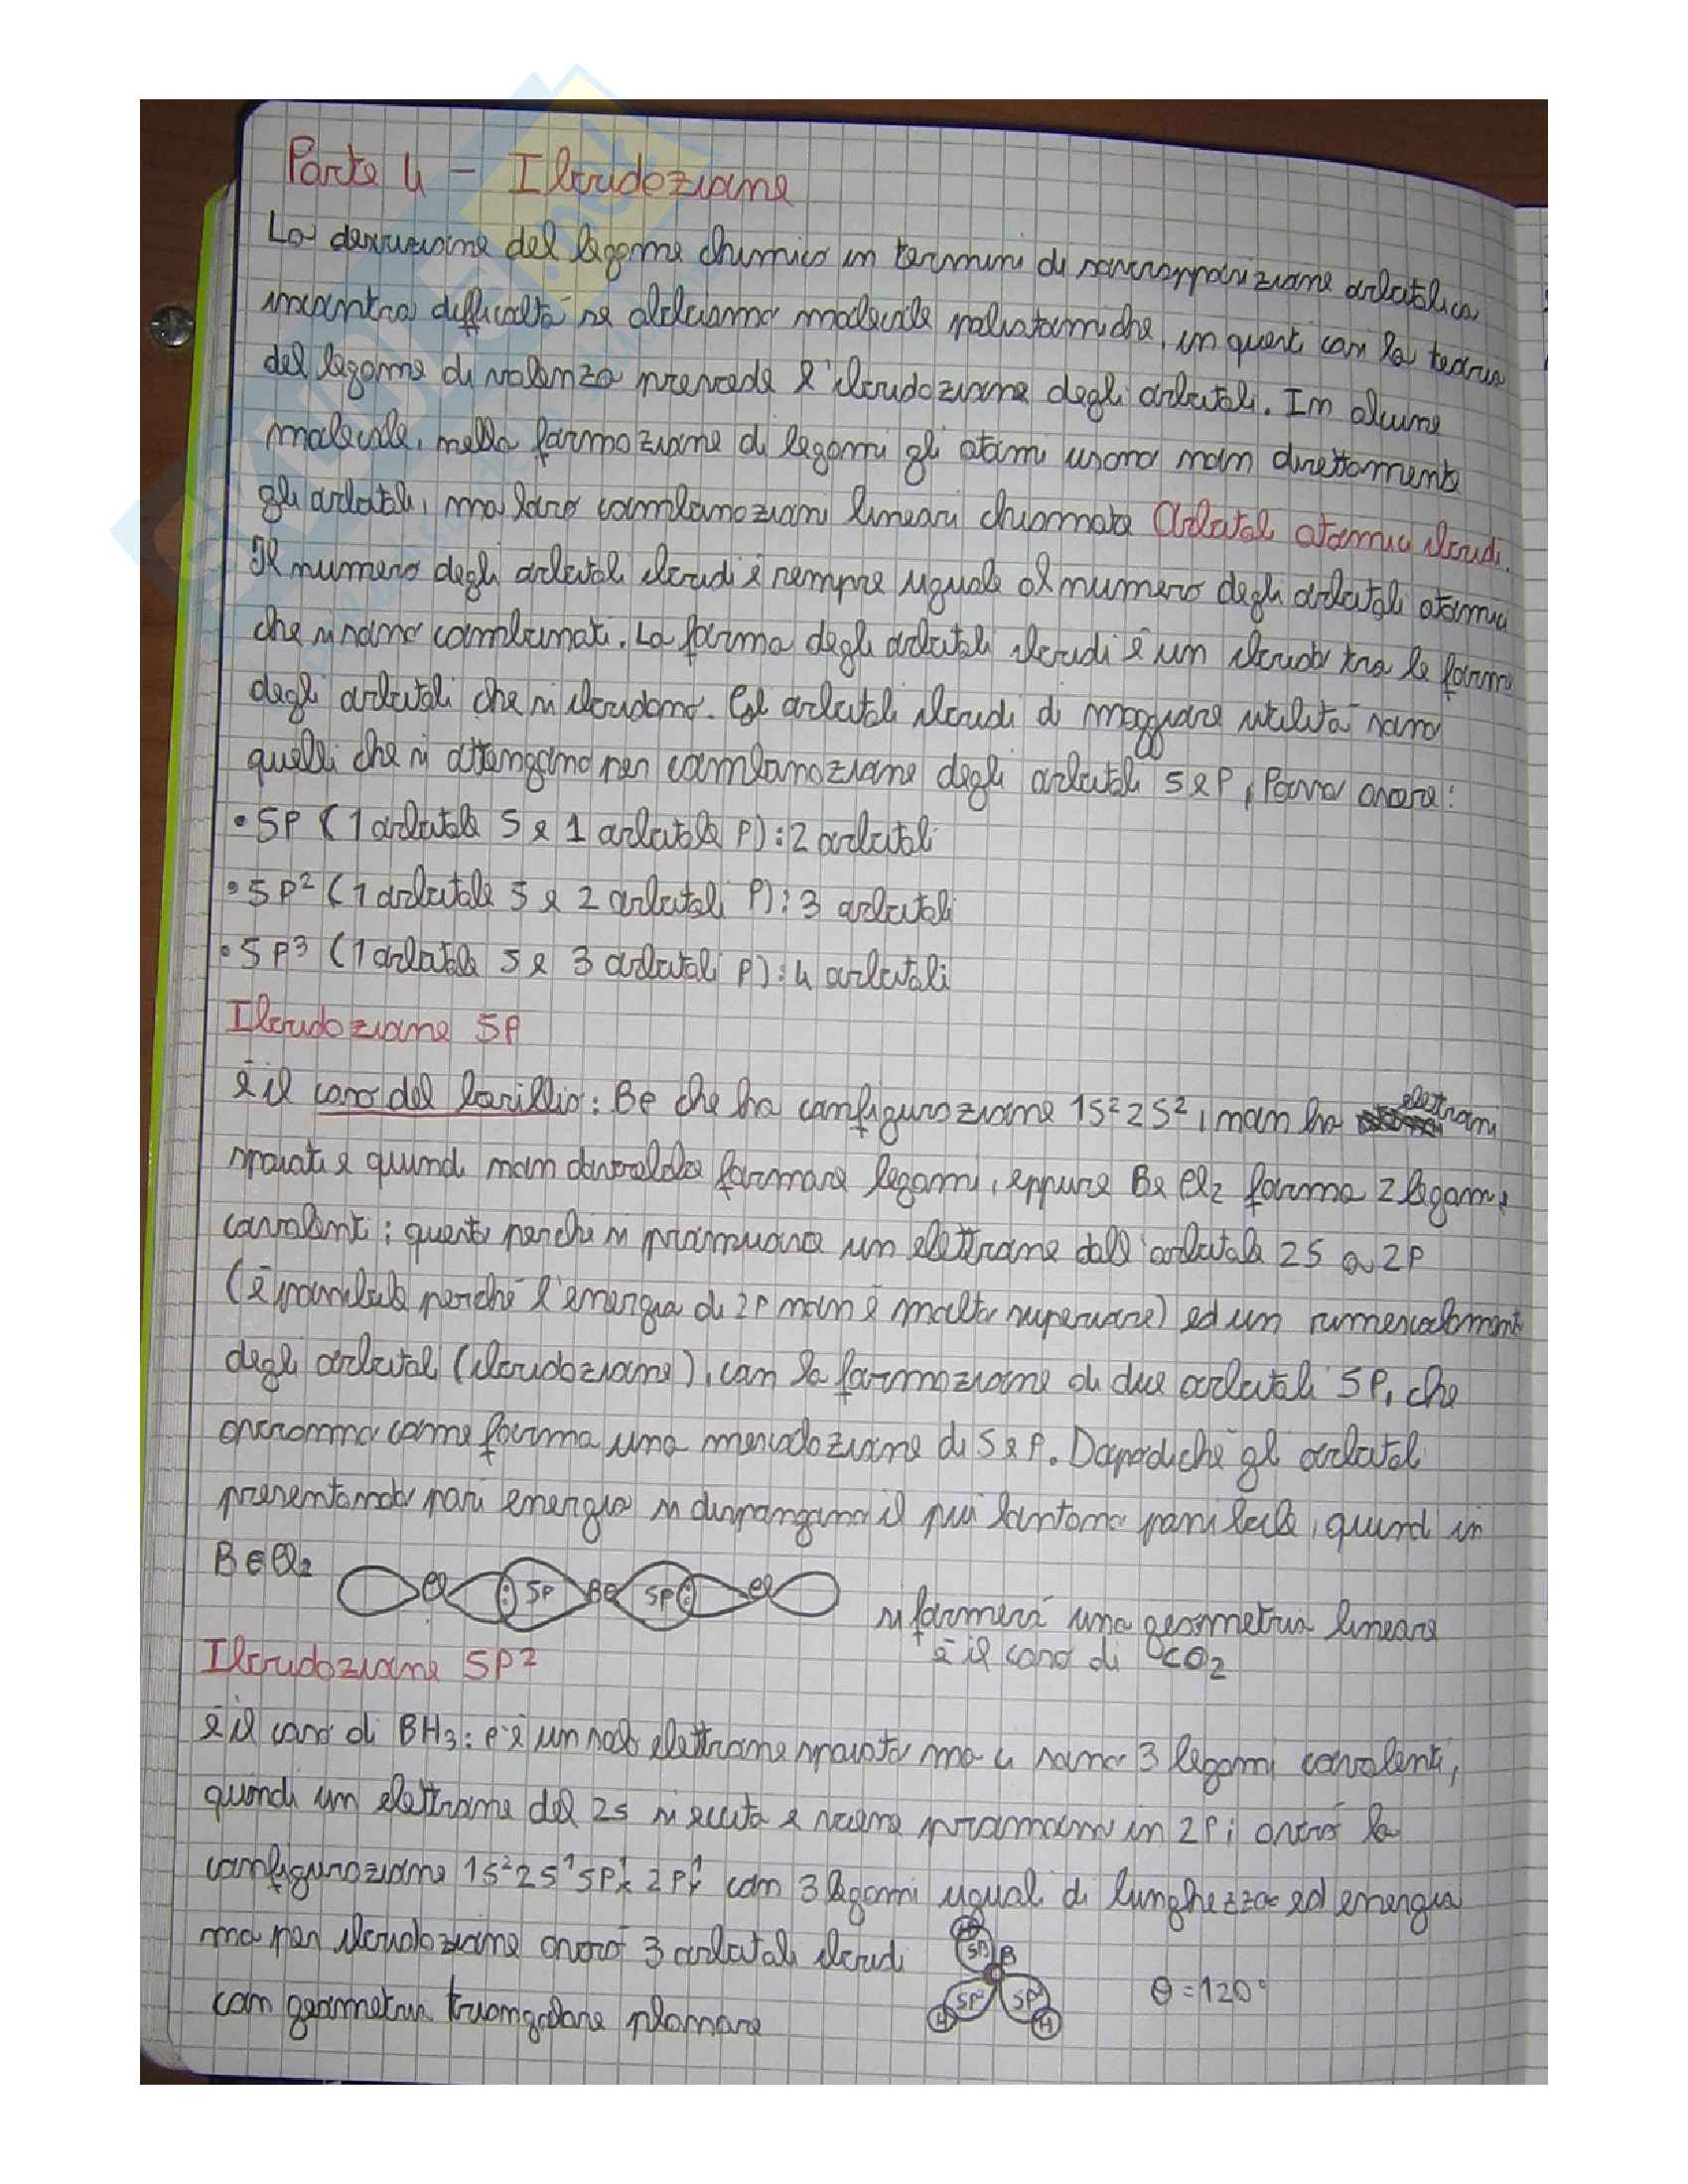 Parte 4 - Ibridazione
La descrizione del legame chimico in termini di sovrapposizione orbitalica
incontra difficoltà se abbiamo molecole poliatomiche, in quanti con la teoria
del legame di valenza prevede l'ibridazione degli orbitali. In alcune
molecole, nella formazione di legami gli atomi usano non direttamente
gli orbitali, ma loro combinazioni lineari chiamate Orbitali atomici ibridi.
Il numero degli orbitali ibridi è sempre uguale al numero degli orbitali atomici
che si sono combinati. La forma degli orbitali ibridi è un ibrido tra le forme
degli orbitali che si ibridano. Gli orbitali ibridi di maggiore utilità sono
quelli che si ottengono per combinazione degli orbitali S e P, Posso avere:
• SP (1 orbitale S e 1 orbitale P): 2 orbitali
• SP² (1 orbitale S e 2 orbitali P): 3 orbitali
• SP³ (1 orbitale S e 3 orbitali P): 4 orbitali
Ibridazione SP
è il caso del berillio: Be che ha configurazione 1S² 2S², non ha elettroni
spaiati e quindi non dovrebbe formare legami, eppure BeCl₂ forma 2 legami
covalenti; questo perché si promuove un elettrone dall'orbitale 2S a 2P
(è possibile perché l'energia di 2P non è molto superiore) ed un rimescolamento
degli orbitali (ibridazione), con la formazione di due orbitali SP, che
avranno come forma una mescolazione di S e P. Dopodiché gli orbitali
presentando pari energia si dispongano il più lontano possibile, quindi in
BeCl₂ Cl SP Be SP Cl si formerà una geometria lineare
è il caso di CO₂
Ibridazione SP²
è il caso di BH₃: c'è un solo elettrone spaiato ma ci sono 3 legami covalenti,
quindi un elettrone del 2s si eccita e viene promosso in 2P; avrò la
configurazione 1S² 2S¹ 5P¹x 2P¹y con 3 legami uguali di lunghezza ed energia
ma per ibridazione avrò 3 orbitali ibridi
con geometria triangolare planare
SP² B SP² SP² H H H
θ = 120°